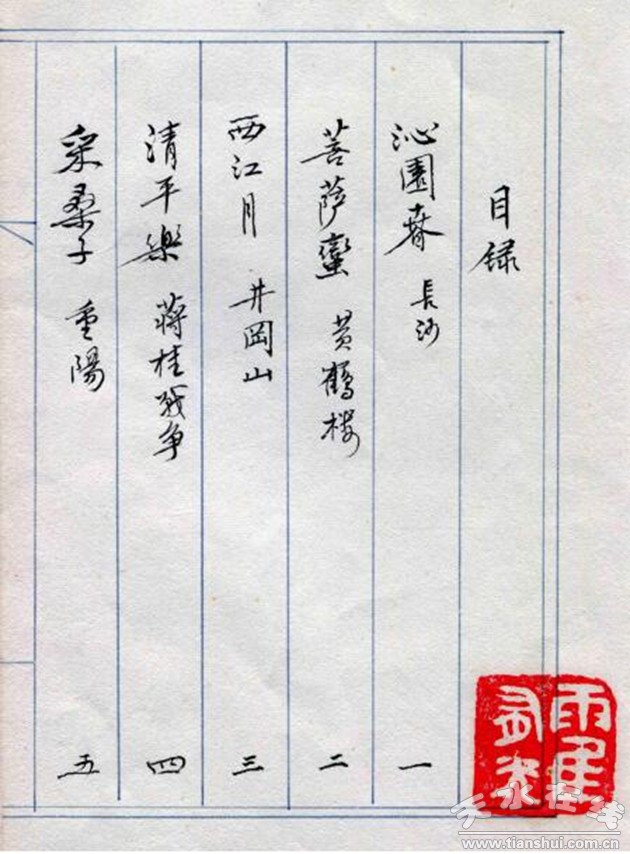 目録
沁園春 長沙 一
菩薩蠻 黄鶴楼 二
西江月 井岡山 三
清平樂 蒋桂戰争 四
采桑子 重陽 五
天水在线
www.tianshui.com.cn